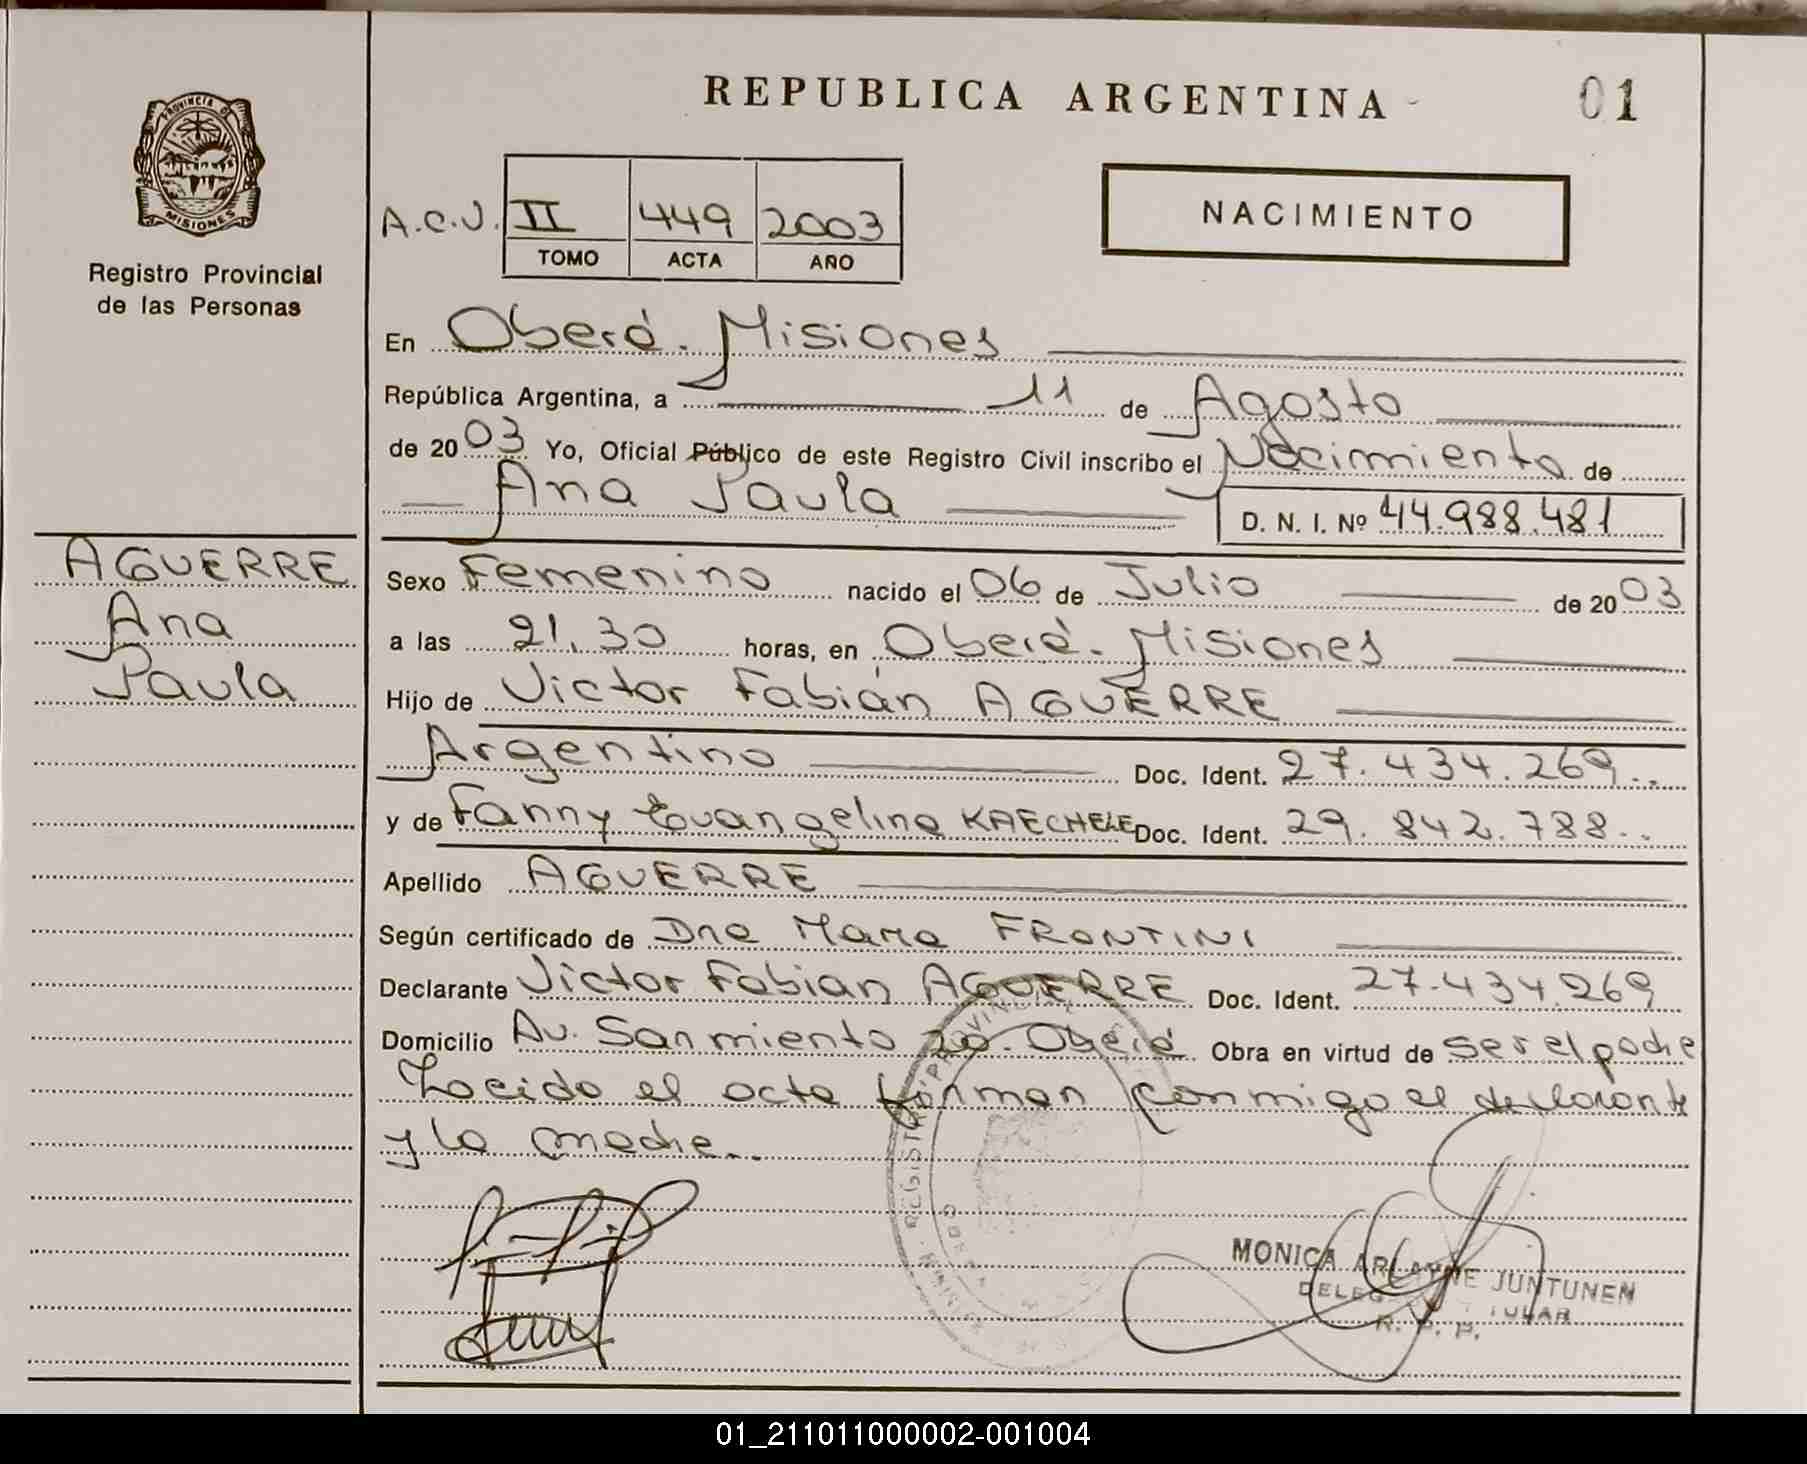 REPUBLICA ARGENTINA
01
PROVINCIA DE
MISIONES
Registro Provincial
de las Personas
A.C.V. II 449 2003
TOMO ACTA AÑO
NACIMIENTO
En Oberá. Misiones
República Argentina, a 11 de Agosto
de 2003 Yo, Oficial Público de este Registro Civil inscribo el Nacimiento de
Ana Paula D. N. I. Nº 44.988.481
AGUERRE
Ana
Paula
Sexo Femenino nacido el 06 de Julio de 2003
a las 21.30 horas, en Oberá. Misiones
Hijo de Victor Fabián AGUERRE
Argentino Doc. Ident. 27.434.269..
y de Fanny Evangelina KAECHELE Doc. Ident. 29.842.788..
Apellido AGUERRE
Según certificado de Dra Maria FRONTINI
Declarante Victor Fabian AGUERRE Doc. Ident. 27.434.269
Domicilio Av. Sarmiento 20. Oberá Obra en virtud de ser el padre
Leida el acta firman conmigo el declarante
y la madre..
MONICA ARLAYNE JUNTUNEN
R. P. P.
01_211011000002-001004